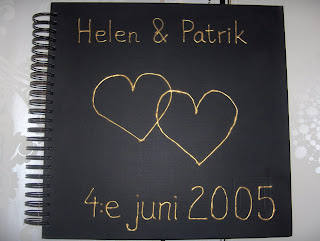 Helen & Patrik
4:e juni 2005